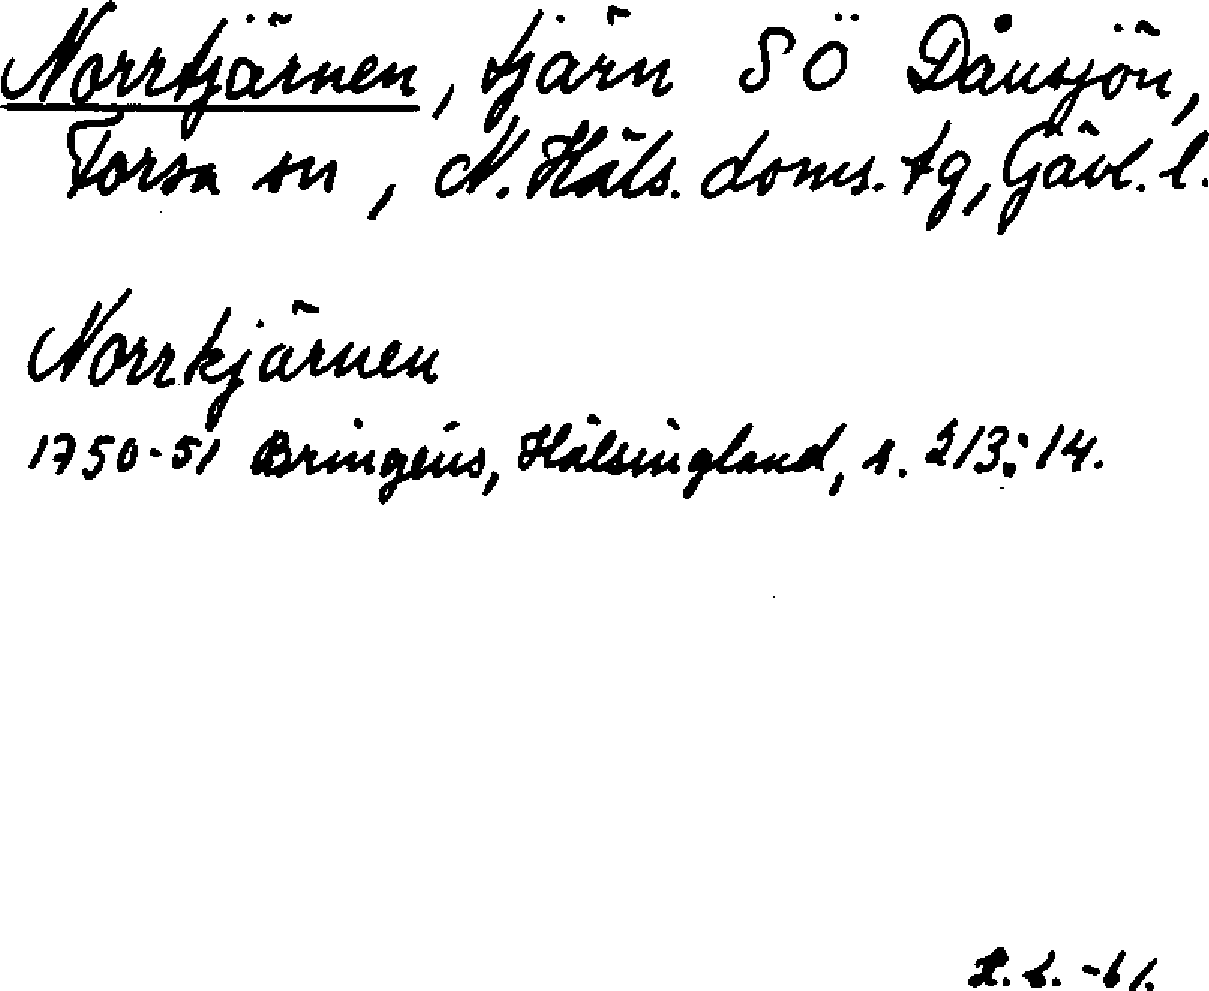 Norrtjärnen, tjärn SÖ Dånsjön,
Forsa sn, N. Häls. doms. tg, Gävl. l.
Norrkjärnen
1750-51 Bringéus, Hälsingland, s. 213: 14.
-61.